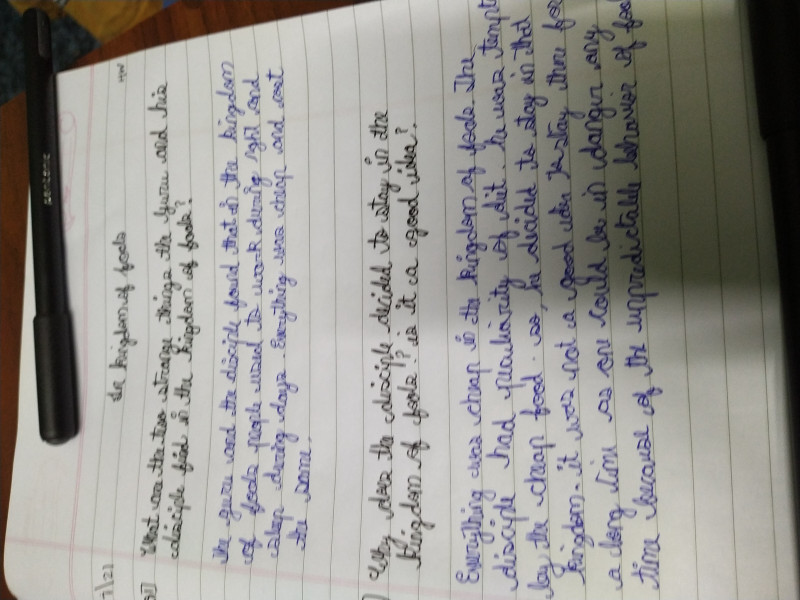 7/21
H/W
the kingdom of fools
What are the two strange things the guru and his
disciple find in the kingdom of fools?
the guru and the disciple found that in the kingdom
of fools people used to work during night and
sleep during days. Everything was cheap and cost
the same.
Why does the disciple decided to stay in the
kingdom of fools? is it a good idea?
Everything was cheap in the kingdom of fools. The
disciple had of diet he was
by the cheap food. so, he decided to stay in that
kingdom. it was not a good idea to stay there
a long time as one could be in danger any
time because of the unpredictable behavior of